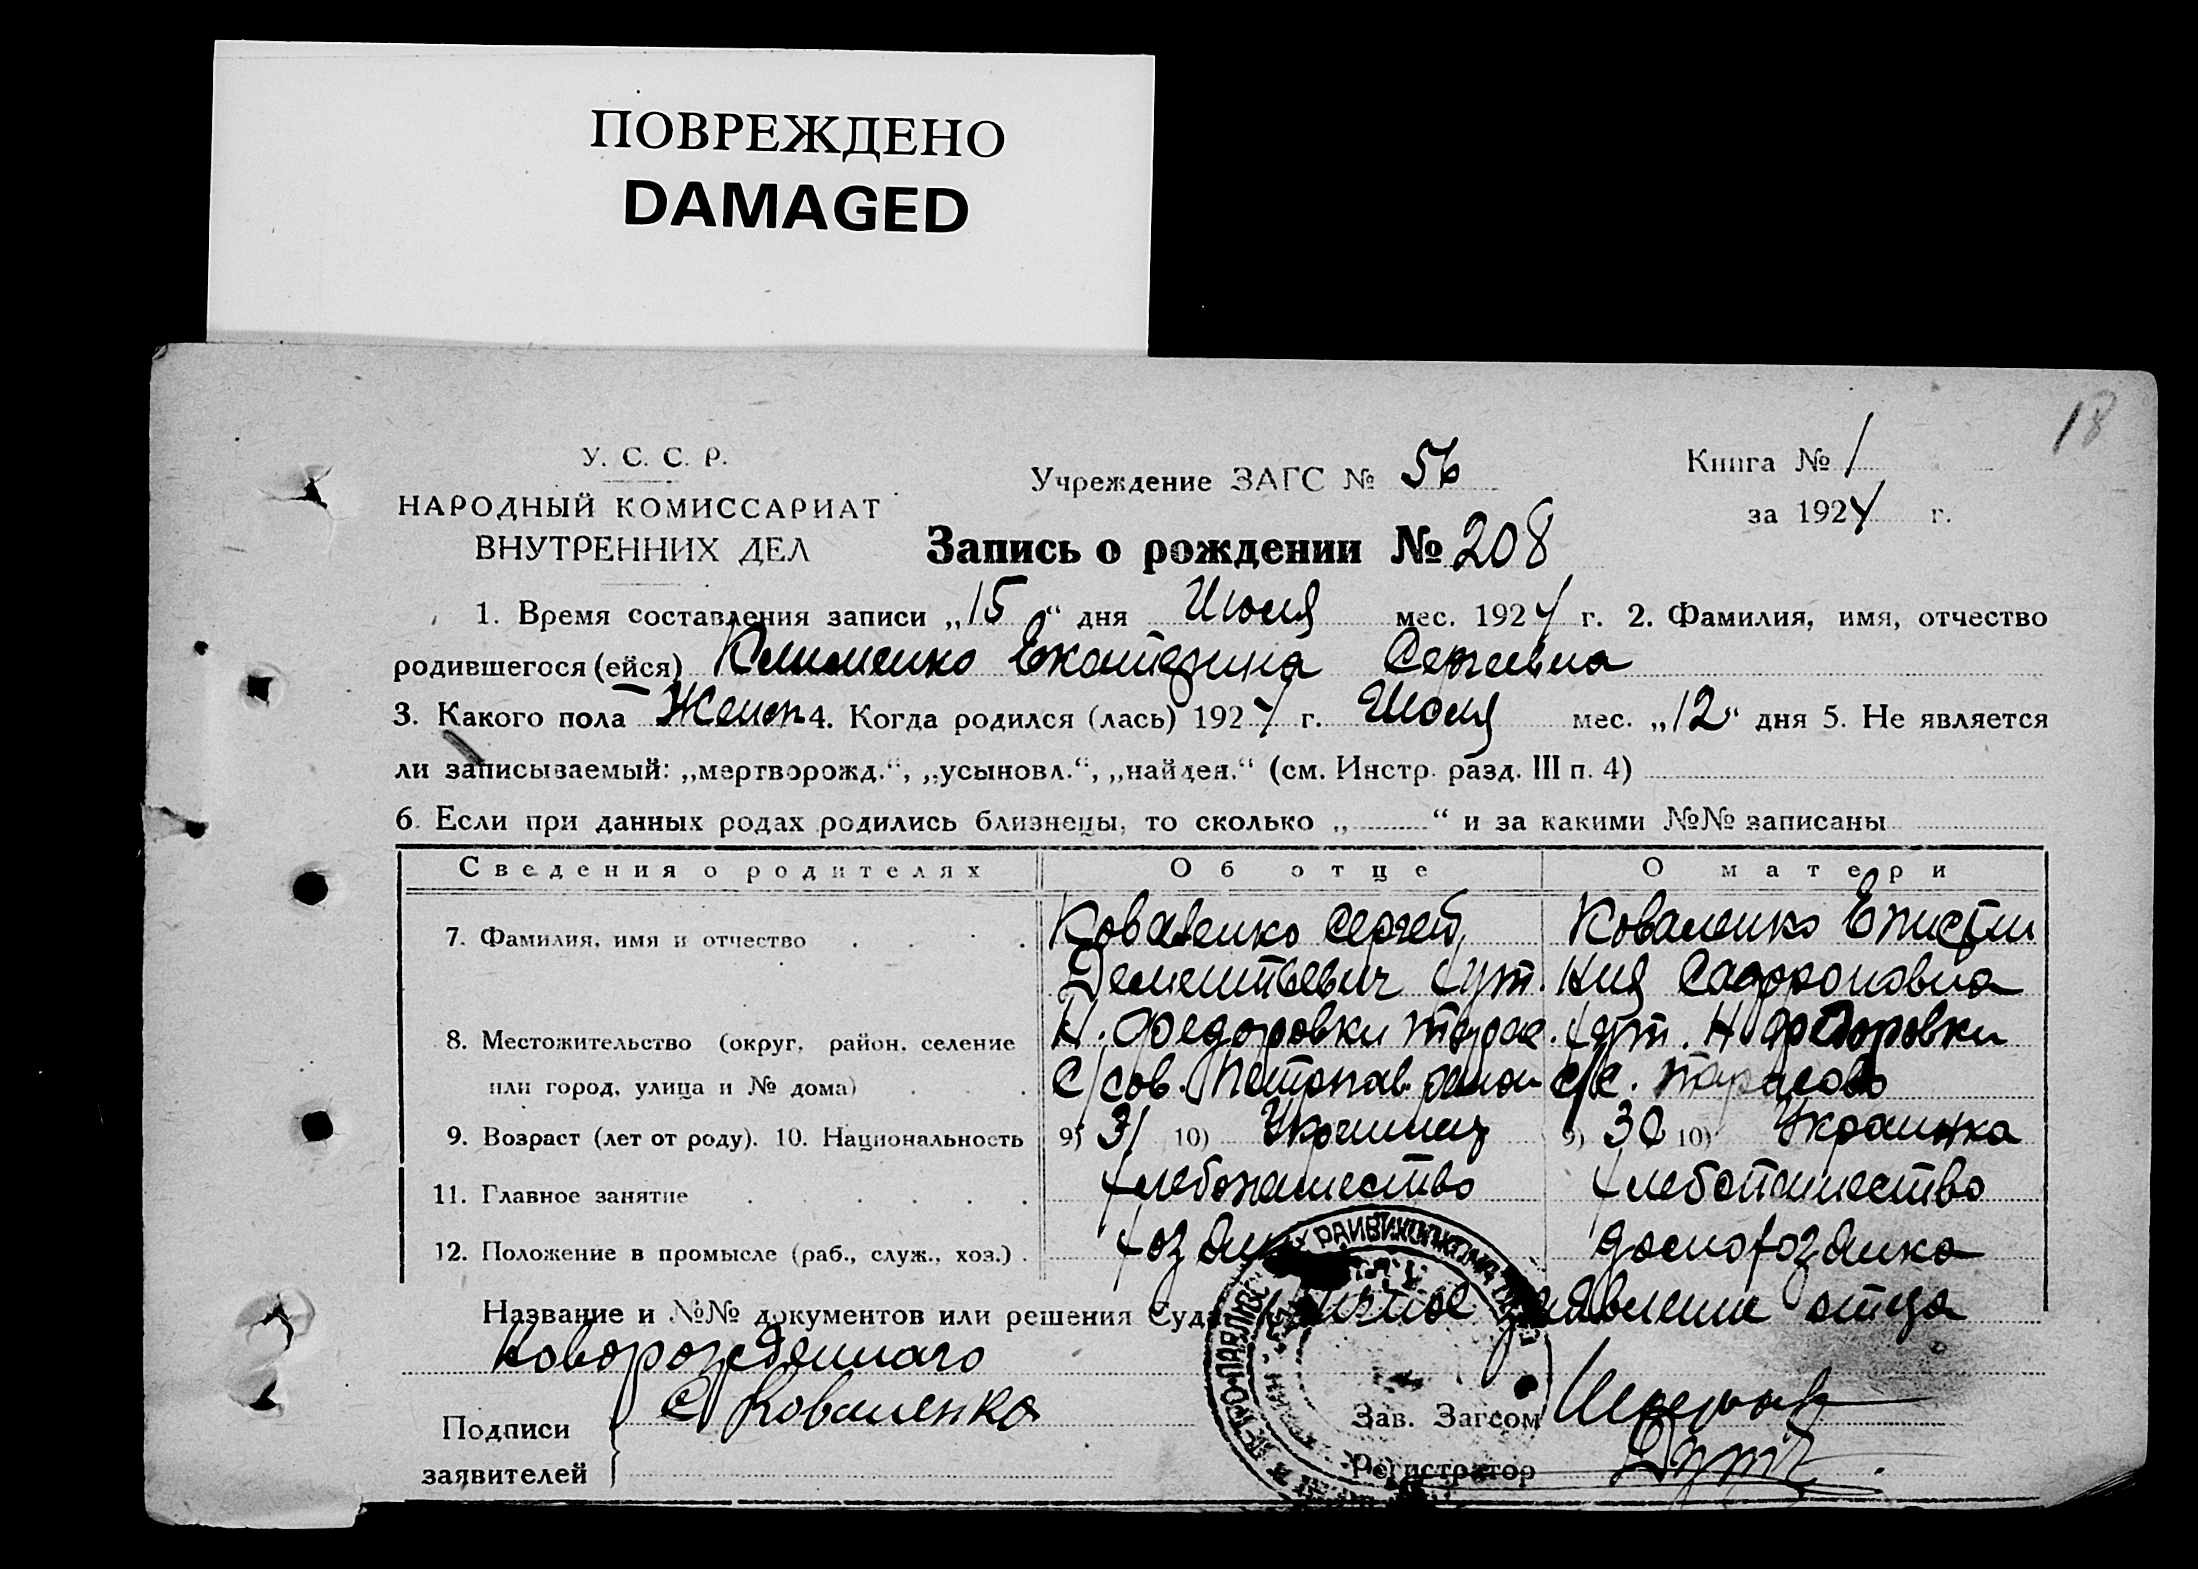 ПОВРЕЖДЕНО
DAMAGED
18
У. С. С. Р.
НАРОДНЫЙ КОМИССАРИАТ
ВНУТРЕННИХ ДЕЛ
Учреждение ЗАГС № 56
Книга № 1
за 1924 г.
Запись о рождении № 208
1. Время составления записи „15“ дня Июля мес. 1924 г. 2. Фамилия, имя, отчество
родившегося (ейся) Екатерина Сергеевна
3. Какого пола Женск 4. Когда родился (лась) 1924 г. Июля мес. „12“ дня 5. Не является
ли записываемый: „мертворожд.“, „усыновл.“, „найден.“ (см. Инстр. разд. III п. 4)
6. Если при данных родах родились близнецы, то сколько „ “ и за какими №№ записаны
Сведения о родителях Об отце О матери
7. Фамилия, имя и отчество Коваленко Сергей Коваленко Епистим
Дементьевич хут. ния Сафроновна
8. Местожительство (округ, район, селение Н. Федоровки Тарас. хут. Н Федоровки
или город, улица и № дома) с/сов. Петропав. район с/с.
9. Возраст (лет от роду). 10. Национальность 9) 31 10) Украинец 9) 30 10) Украинка
11. Главное занятие хлебопашество хлебопашество
12. Положение в промысле (раб., служ., хоз.) хозяин домохозяйка
Название и №№ документов или решения Суда личное заявление отца
новорожденного
Подписи С Коваленко
заявителей
Зав. Загсом
Регистратор